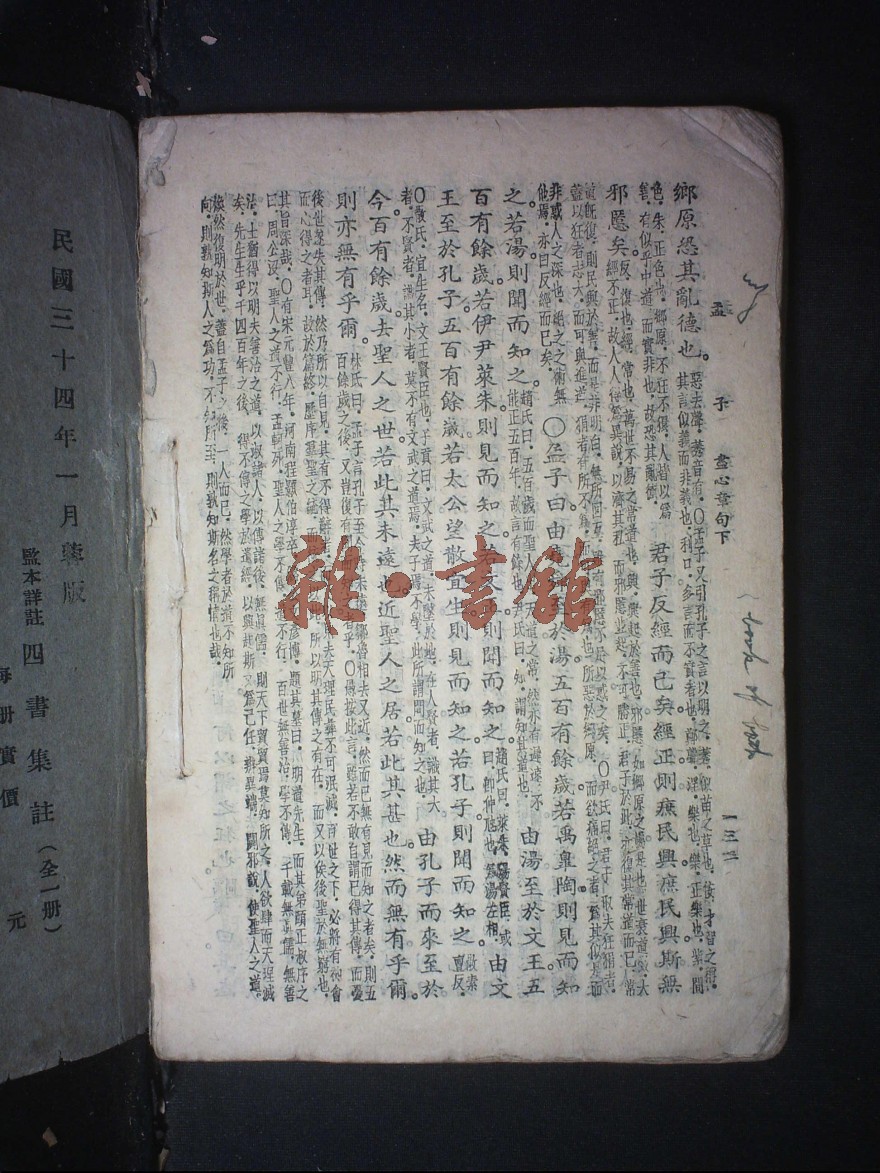 孟　子　盡心章句下　一三二
book of
鄉原恐其亂德也。
惡去聲、莠音有、○孟子又引孔子之言以明之、莠、似苗之草也、佞、才智之稱、
其言似義而非義也、利口、多言而不實者也、鄭聲、淫樂也、樂、正樂也、紫、間
色、朱、正色也、鄉原、不狂不獧、人皆以爲
善、有似乎中道、而實非也、故恐其亂德。
君子反經而已矣經正則庶民興庶民興斯無
邪慝矣。
反、復也、經、常也、萬世不易之常道也、興、興起於善也、邪慝、如鄉原之屬是也、世衰道微、大
經不正、故人人得爲異說、以濟其私、而邪慝並起、不可勝正、君子於此、亦復其常道而已、常
道既復、則民興於善、而是非明白、無所回互、雖有邪慝不足以惑之矣、○尹氏曰、君子取夫狂獧者、
蓋以狂者志大、而可與進道、獧者有所不爲、也、所惡於鄉原、而欲痛絕之者、爲其似是而
非、惑人之深也、絕之之術無
他焉、亦曰反經而已矣。
○孟子曰由至於湯五百有餘歲若禹皋陶則見而知
之。若湯則聞而知之。
趙氏曰、五百歲而聖人出、天道之常、然亦有遲速、不
能正五百年、故言有餘也、尹氏曰、知、謂知其道也、
由湯至於文王五
百有餘歲若伊尹萊朱則見而知之若文王則聞而知之。
趙氏曰、萊朱、湯賢臣、或
曰卽仲虺也、爲湯左相、
由文
王至於孔子五百有餘歲若太公望散宜生則見而知之若孔子則聞而知之。
散、素
亶反、
○散氏、宜生名、文王賢臣也、子貢曰、文武之道、未墜於地、在人、賢者、識其大
者、不賢者、識其小者、莫不有文武之道焉、夫子焉不學、此所謂聞而知之也、
由孔子而來至於
今百有餘歲去聖人之世若此其未遠也近聖人之居若此其甚也然而無有乎爾。
則亦無有乎爾。
林氏曰、孟子言孔子至今時未遠、鄒魯相去又近、然而已無有見而知之者矣、則五
百餘歲之後、又豈復有者乎、○愚按此言、雖若不敢自謂已得其傳、而憂
後世遂失其傳、然乃所以自見、其有不得辭者、夫天理民彝不可泯滅、百世之下、必將有神會
而心得之者耳、故於篇終、歷序羣聖之統、所以明其傳之有在、而又以俟後聖於無窮也、
其旨深哉、○有宋元豐八年、河南程顥伯淳卒、彥博、題其墓曰、明道先生、而其弟頤正叔序之
曰、周公沒、聖人之道不行、孟軻死、聖人之學不傳、道不行、百世無善治、學不傳、千載無眞儒、無善
治、士猶得以明夫善治之道、以淑諸人、以傳諸後、無眞儒、則天下貿貿焉莫知所之、人欲肆而天理滅
矣、先生生乎千四百年之後、得不傳之學於遺經、以興起斯文爲己任、辨異端、闢邪說、使聖人之道、
煥然復明於世、蓋自孟子之後、一人而已、然學者於道不知所
向、則孰知斯人之爲功、不知所至、則孰知斯名之稱情也哉、
民國三十四年一月蓉版
監本詳註四書集註（全一冊）
每冊實價　元
雜·書館